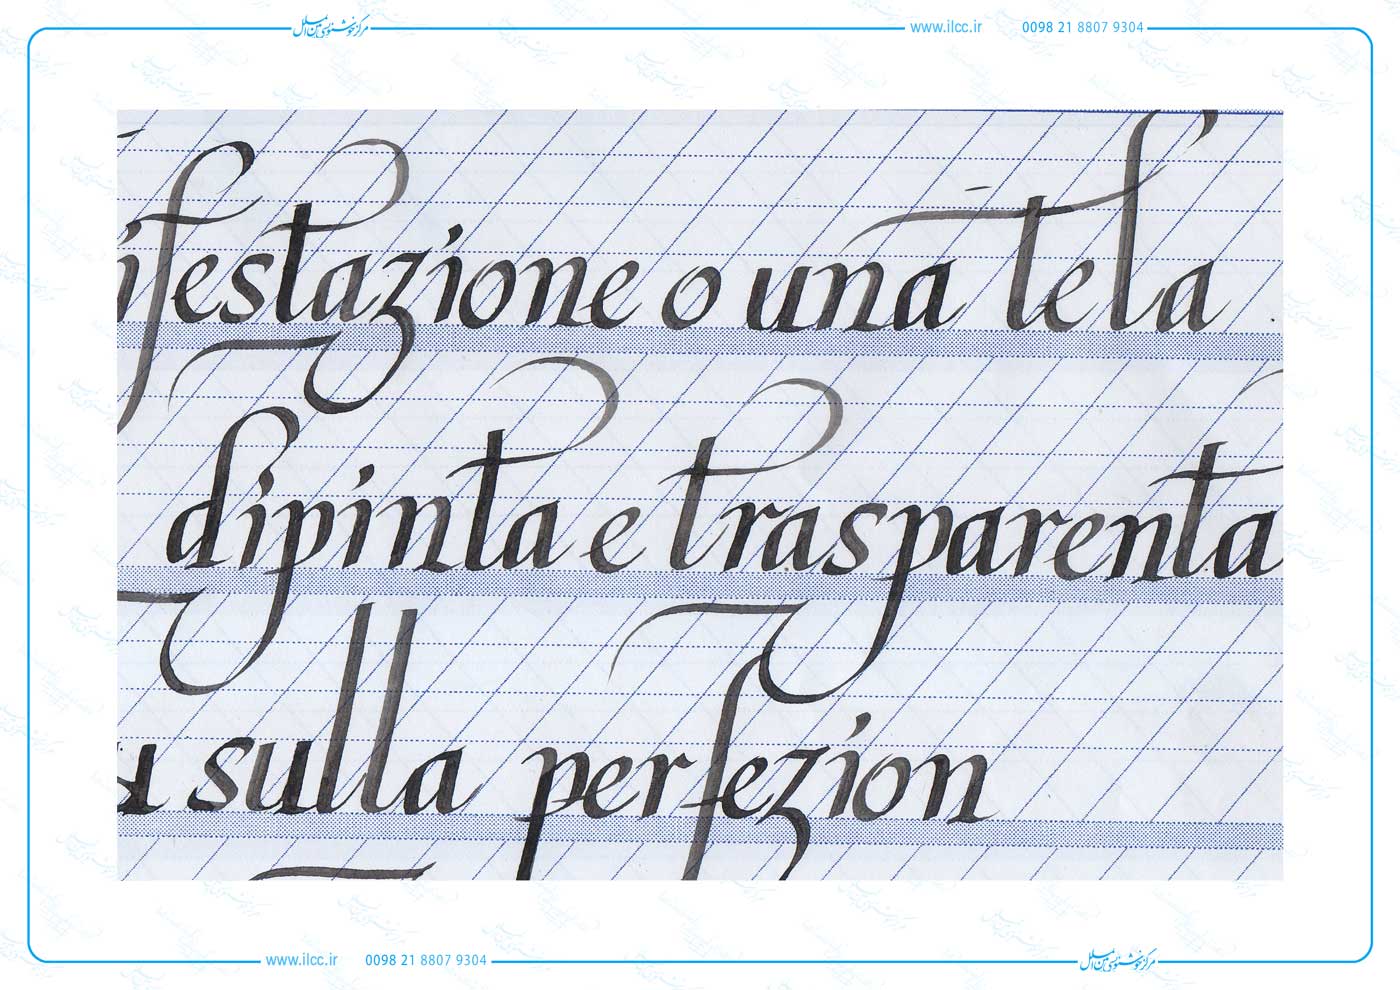 مرکز خوشنویسی بین الملل www.ilcc.ir 0098 21 8807 9304
ifestazione o una tela
dipinta e trasparenta
sulla perfezion
www.ilcc.ir 0098 21 8807 9304 مرکز خوشنویسی بین الملل